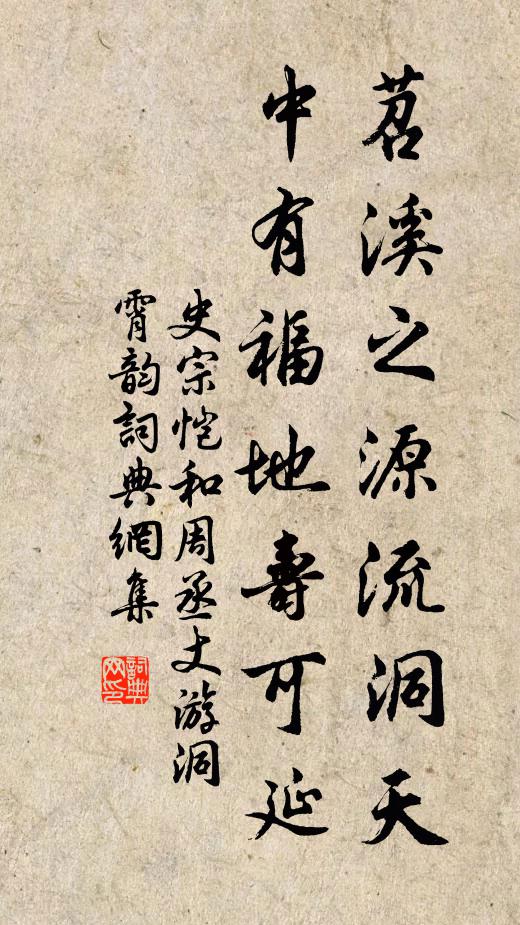 苕溪之源流洞天
中有福地壽可延
史宗恺和周丞丈游洞
霄韵詞典網集
詞典网印